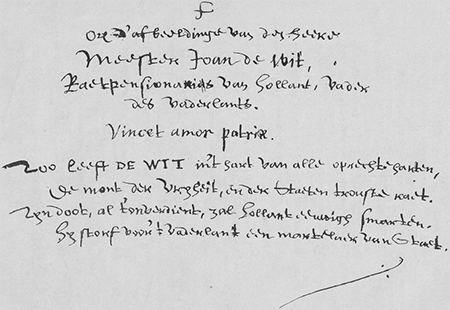 Op d'afbeeldinge van den heere
Meester Joan de Wit,
Raetpensionaris van Hollant, vader
des vaderlants.
Vincet amor patriæ.
Zoo leeft DE WIT in't hart van alle oprechte harten,
De mont der vryheit, en der Staeten trouste raet.
Zyn doot, al t'onverdient, zal Hollant eeuwigh smarten.
Hy storf voor't Vaderlant een martelaer van Staet.